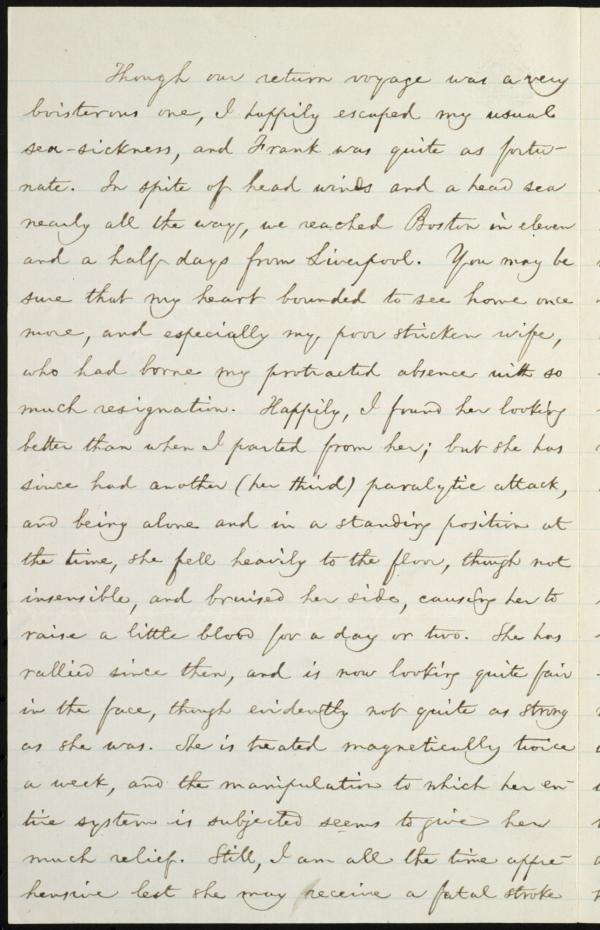 Though our return voyage was a very
boisterous one, I happily escaped my usual
sea-sickness, and Frank was quite as fortu-
nate. In spite of head winds and a head sea
nearly all the way, we reached Boston in eleven
and a half days from Liverpool. You may be
sure that my heart bounded to see home once
more, and especially my poor stricken wife,
who had borne my protracted absence with so
much resignation. Happily, I found her looking
better than when I parted from her; but she has
since had another (her third) paralytic attack,
and being alone and in a standing position at
the time, she fell heavily to the floor, though not
insensible, and bruised her side, causing her to
raise a little blood for a day or two. She has
rallied since then, and is now looking quite fair
in the face, though evidently not quite as strong
as she was. She is treated magnetically twice
a week, and the manipulation to which her en-
tire system is subjected seems to give her
much relief. Still, I am all the time appre-
hensive lest she may receive a fatal stroke